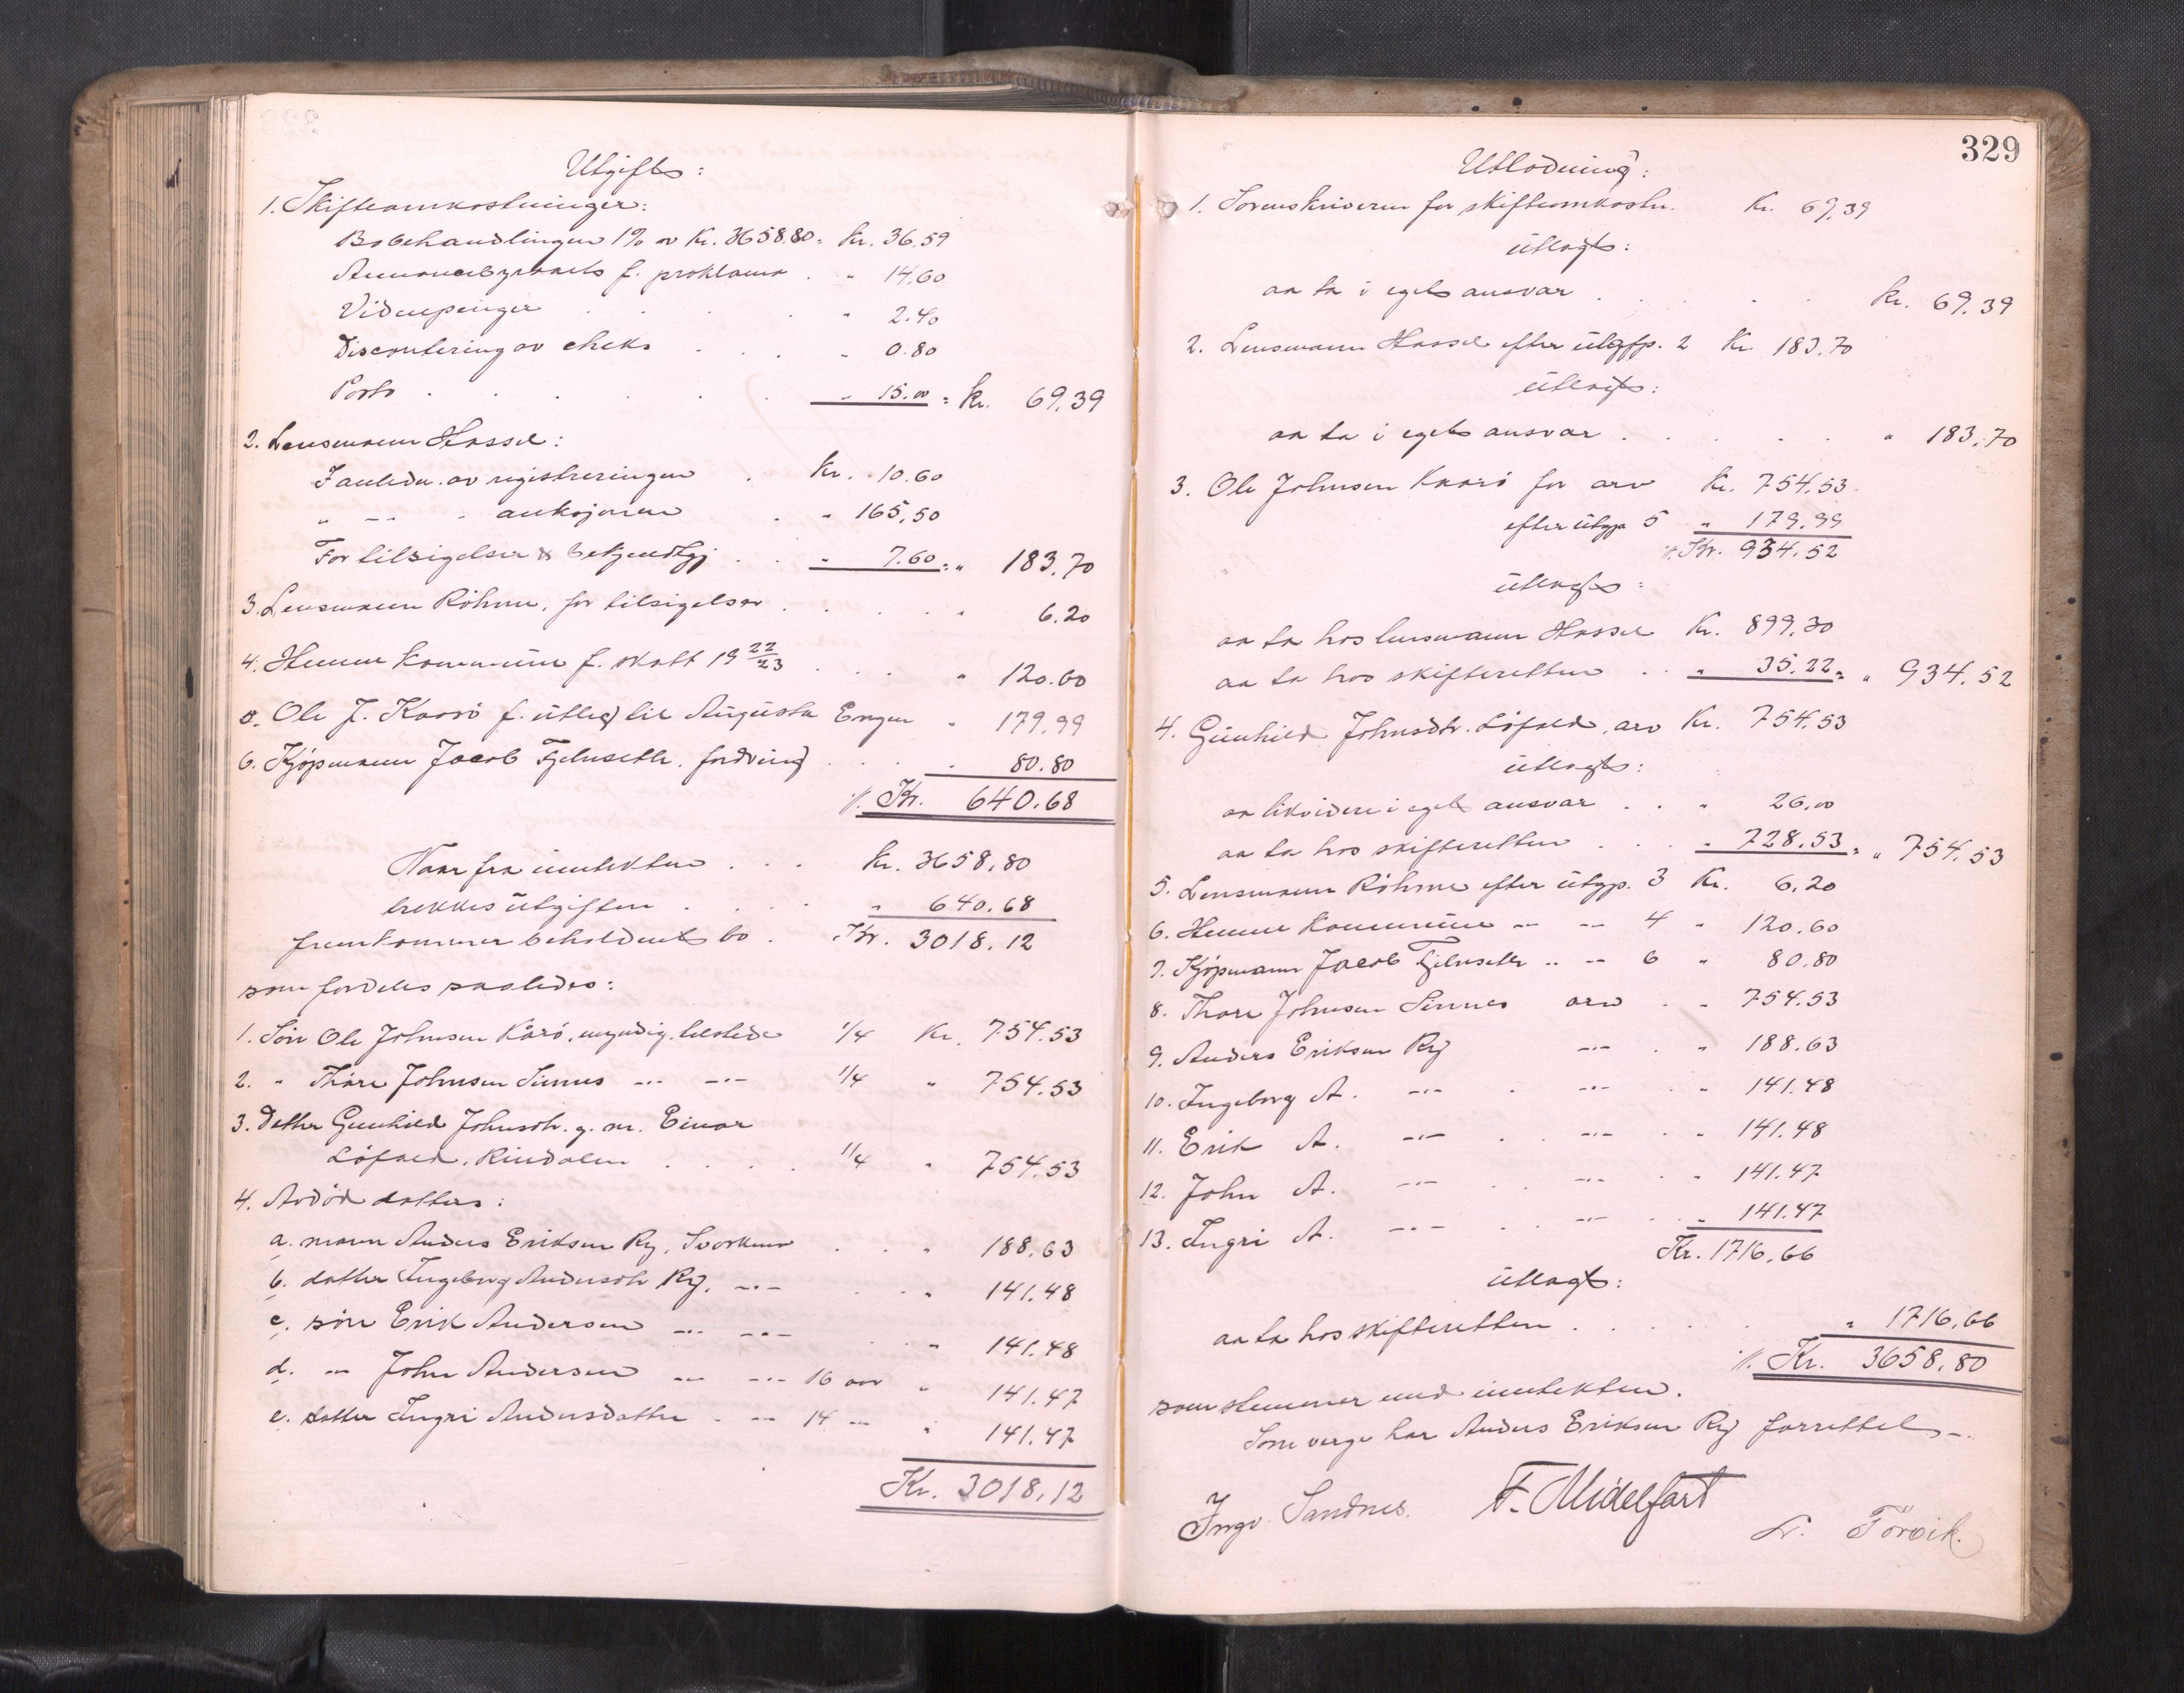 Utgifts:
1. Skifteomkostninger:
Bobehandlingen 1% av Kr. 3658.80 = Kr. 36.59
f. proklama . " 14.60
Vidnepenger . . . " 2.40
Discontering av cheks . . . " 0.80
Porto . . . . . " 15.00 = Kr. 69.39
2. Lensmann Hassel:
Innledn. av registreringen . Kr. 10.60
" -- . auksjonen . " 165.50
For tilsigelser & bekjendtgj . . " 7.60 = " 183.70
3. Lensmann Röhme, for tilsigelser . . . . " 6.20
4. Hemne Kommune f. skatt 19 22/23 . . . " 120.60
5. Ole J. Kaarö f. utlegg til Augusta Engen " 179.99
6. Kjøpmann Jacob Fjelnseth. fordring . . . 80.80
Kr. 640.68
Naar fra inntekten . . . Kr. 3658.80
trekkes utgiften . . . . " 640.68
fremkommer beholdent bo . Kr. 3018.12
som fordeles saaledes:
1. Sön Ole Johnsen Kårö, myndig, tilstede 1/4 Kr. 754.53
2. " Thore Johnsen Sinnes -"- -"- 1/4 " 754.53
3. Datter Gunhild Johnsdtr. g. m. Einar
Löfald, Rindalen . . . . 1/4 " 754.53
4. Avdöd datters:
a. mann Anders Eriksen Ry, Svorkmo . . . " 188.63
b. datter Ingeborg Andersdtr Ry, -"- . . . " 141.48
c. sön Erik Andersen -"- -"- . . " 141.48
d. -"- John Andersen -"- -"- 16 aar " 141.47
e. datter Ingri Andersdatter . -"- 14 -"- " 141.47
Kr. 3018.12
329
Utlodning:
1. Sorenskriveren for skifteomkostn. Kr. 69.39
utlagt:
aa ta i eget ansvar . . . . . Kr. 69.39
2. Lensmann Hassel efter utgp. 2 Kr. 183.70
utlagt:
aa ta i eget ansvar . . . . . " 183.70
3. Ole Johnsen Kaarö for arv Kr. 754.53
efter utgp 5 " 179.99
Kr. 934.52
utlagt:
aa ta hos lensmann Hassel Kr. 899.30
aa ta hos skifteretten . . " 35.22 = " 934.52
4. Gunhild Johnsdtr. Löfald, arv Kr. 754.53
utlagt:
aa likvidere i eget ansvar . . " 26.00
aa ta hos skifteretten . . . " 728.53 = " 754.53
5. Lensmann Röhme efter utgp. 3 Kr. 6.20
6. Hemne Kommune -"- -"- 4 " 120.60
7. Kjøpmann Jacob Fjelnseth -"- -"- 6 " 80.80
8. Thore Johnsen Sinnes arv . " 754.53
9. Anders Eriksen Ry -"- . " 188.63
10. Ingeborg A. -"- . -"- . " 141.48
11. Erik A. -"- . . -"- . " 141.48
12. John A. -"- . . -"- . " 141.47
13. Ingri A. -"- . . -"- . " 141.47
Kr. 1716.66
utlagt:
aa ta hos skifteretten . . . . . " 1716.66
Kr. 3658.80
som stemmer med inntekten.
Som verge har Anders Eriksen Ry forrettet.
Ingv. Sandnes. F. Midelfart
Torvik.